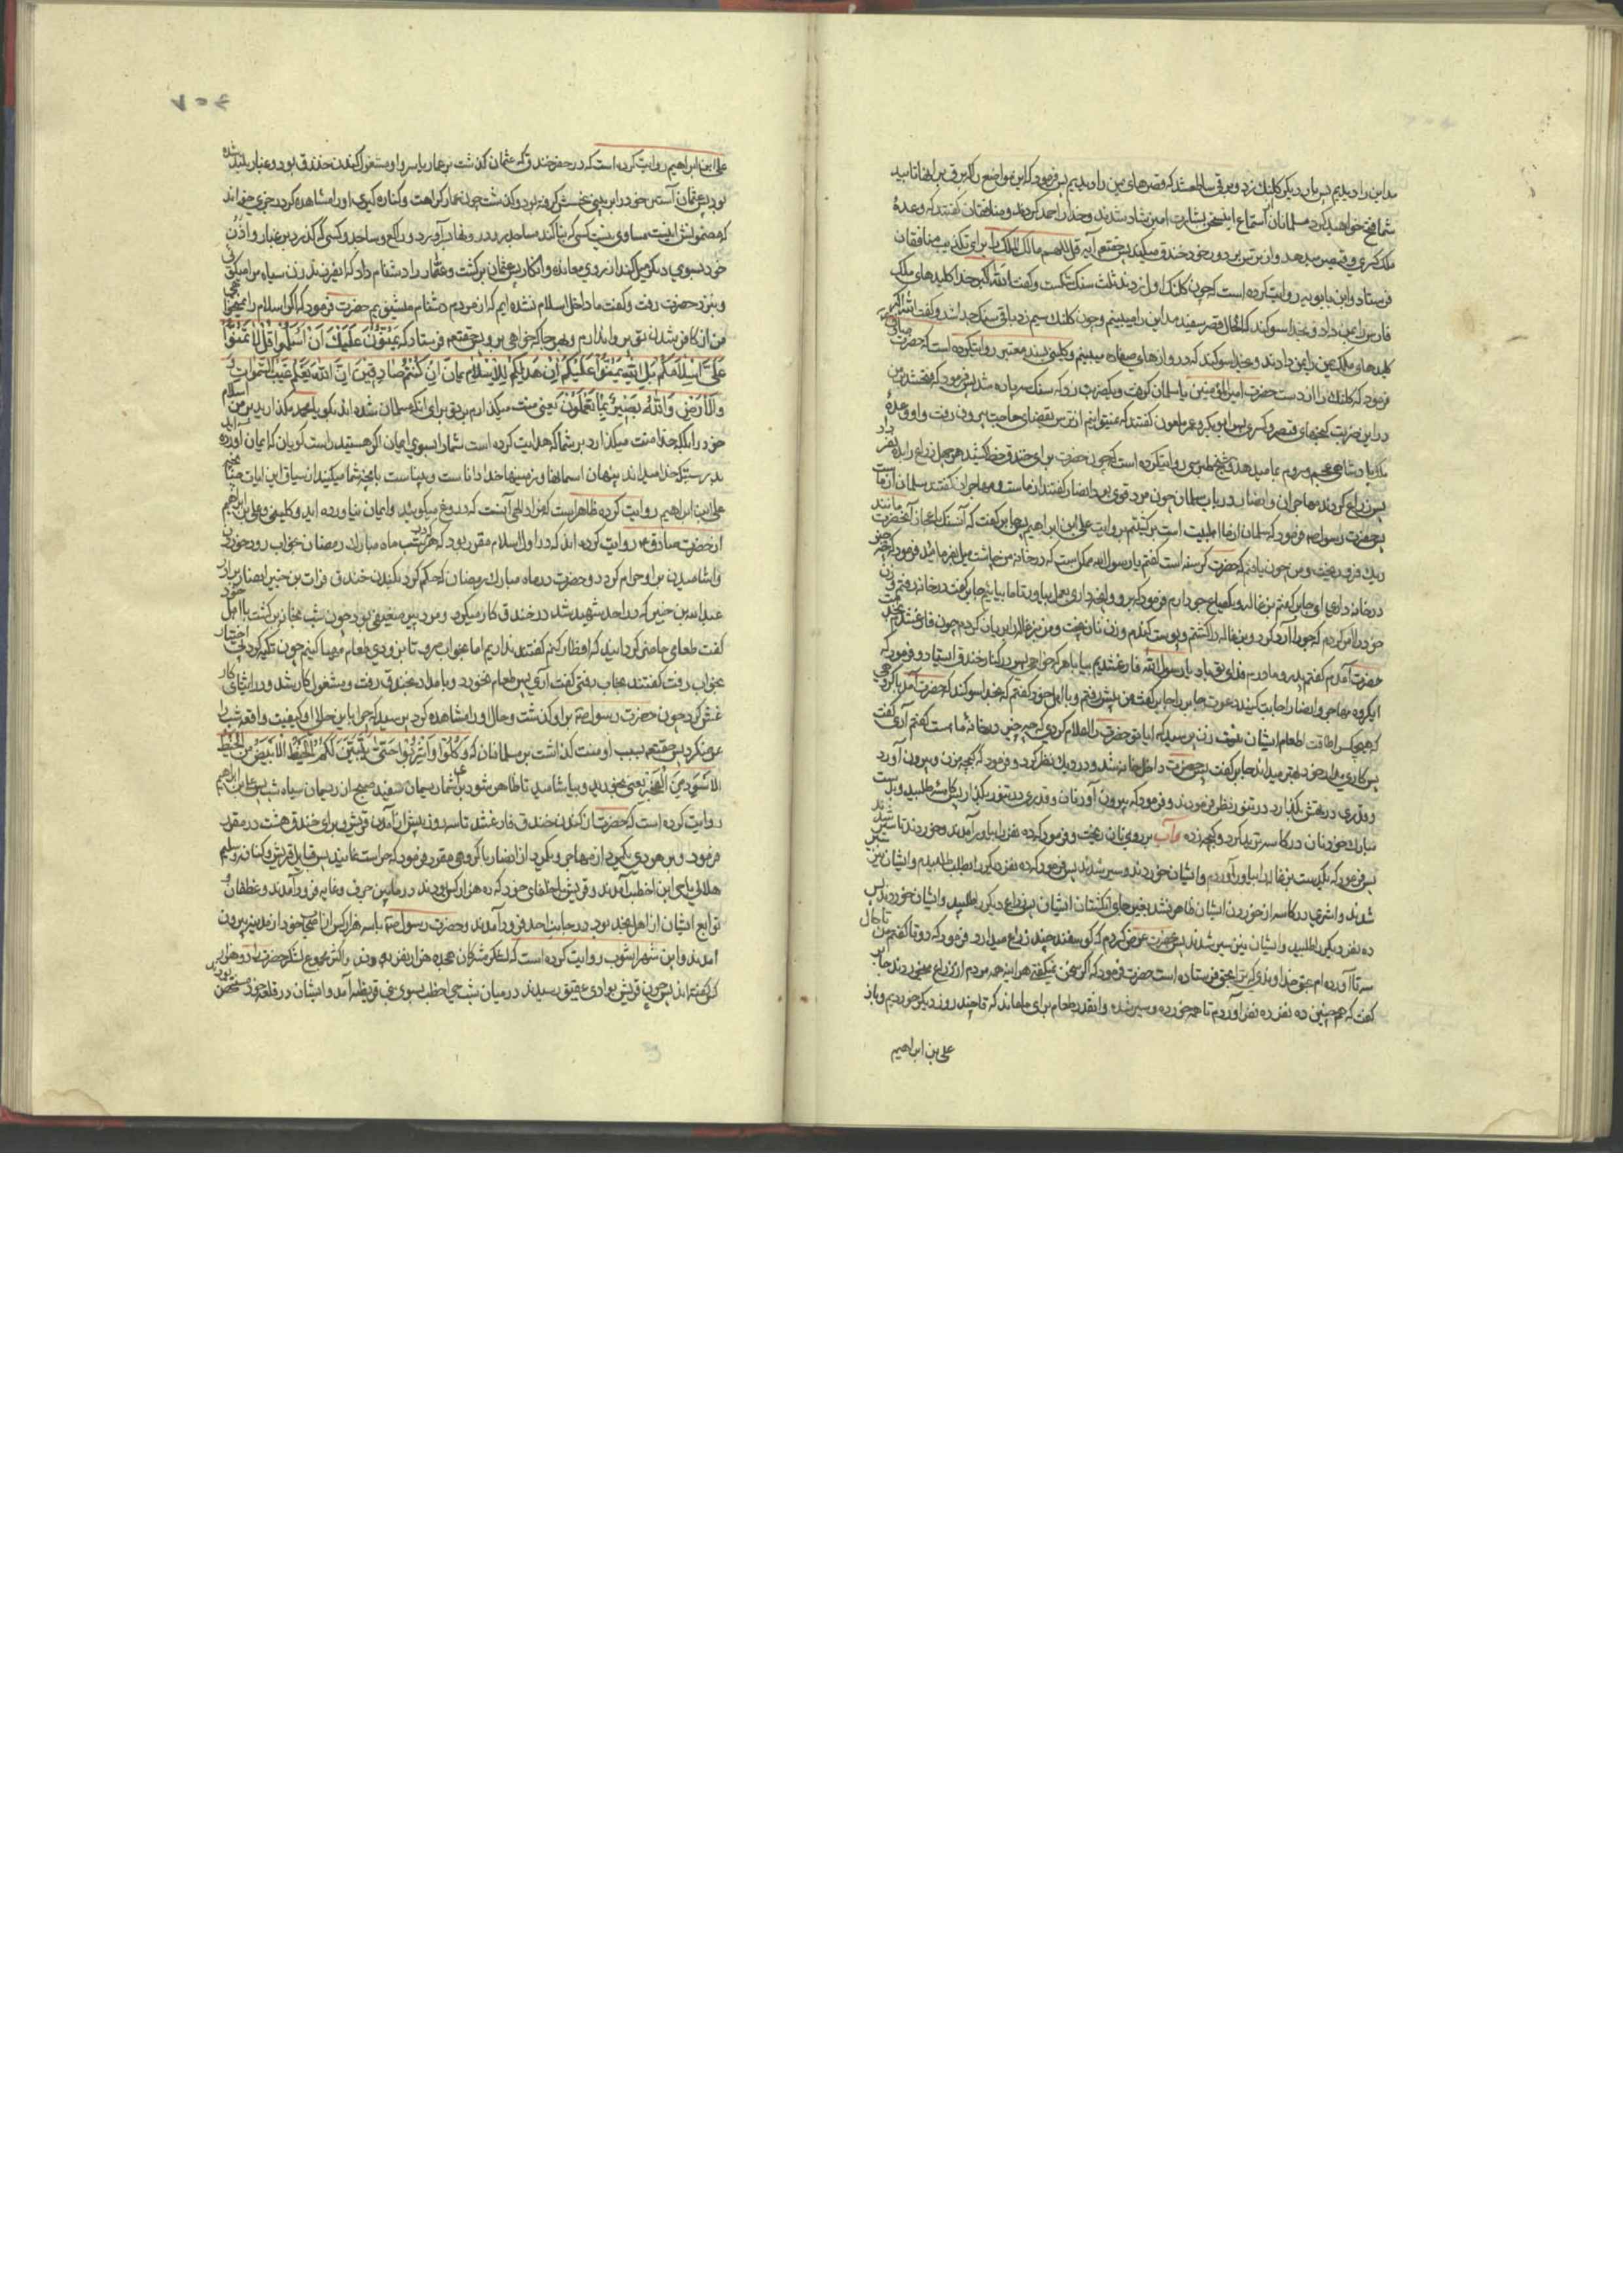 مداین را دیدیم پس بار دیگر کلنك زد و برقی ساطع شد که قصرهای یمن را دیدیم پس فرمود که این مواضع را که برق بر آنها تابید
شما فتح خواهید کرد مسلمانان از استماع این سخن بشارت امیز شاد شدند و خدا را حمد کردند و منافقان گفتند که وعدهٔ
ملك کسری و قیصر میدهد و از ترس بر دور خود خندق میکند پس حقتعم آیه قل اللهم مالك الملك را برای تکذیب منافقان
فرستاد و ابن بابویه روایت کرده است که چون کلنك اول زدند ثلث سنك شکست و گفت الله اکبر خدا کلیدهای ملك
فارس را بمن داد و بخدا سوکند که الحال قصر سفید مداین را میبینم و چون کلنك سیم زد باقی سنك جدا شد و گفت الله اکبر
کلیدهای ملك یمن را بمن دادند و بخدا سوکند که دروازهای صنعا را میبینم و کلینی بسند معتبر روایت کرده است که حضرت صادق
فرمود که کلنك را از دست حضرت امیر المؤمنین یا سلمان گرفت و یکضربت زد که سنك سه پاره شد پس فرمود که فتح شد بر من
در این ضربت گنجهای قیصر و کسری پس ابوبکر و عمر ملعون گفتند که نمیتوانیم از ترس بقضای حاجت بیرون رفت و او وعدهٔ
ملك پادشاهی عجم و روم بما میدهد و شیخ طبرسی روایتکرده است که چون حضرت برای خندق خط کشید هر چهل ذراع را بده نفر داد
پس نزاع کردند مهاجران و انصار در باب سلمان چون مرد قوی بود انصار گفتند از ماست و مهاجران گفتند سلمان از ماست
پس حضرت رسول ص فرمود که سلمان از ما اهلبیت است برگشتیم بروایت علی بن ابراهیم پس جابر گفت که آن سنك باعجاز آنحضرت مانند
ریك فرو ریخت و من چون یافتم که حضرت گرسنه است گفتم یا رسول الله ممکن است که در خانه من چاشت میل بفرمائید فرمود که چه چیز
در خانه داری ای جابر گفتم بزغاله و یکصاع جو دارم فرمود که برو و آنچه داری بعمل بیاور تا ما بیائیم جابر گفت در خانه رفتم و زن
خود را امر کردم که جو را آرد کرد و بزغاله را کشتم و پوست کندم و زن نان پخت و من بزغاله را بریان کردم چون فارغ شدم بخدمت
حضرت آمدم گفتم پدر و مادرم فدای تو باد یا رسول الله فارغ شدیم بیا با هر که خواهی پس در کنار خندق ایستاد و فرمود که
ایگروه مهاجر و انصار اجابت کنید دعوت جابر را جابر گفت من پیش رفتم و با اهل خود گفتم که بخدا سوکند که حضرت آمد با گروهی
که هیچکس را طاقت اطعام ایشان نیست زن پرسید که ایا تو حضرت را اعلام کردی که چه چیز در خانهٔ ما است گفتم آری گفت
پس کاری مدار خود بهتر میداند جابر گفت پس حضرت داخل خانه شد و در دیك نظر کرد و فرمود که کمچه بزن و بیرون آورد
و قدری در تهش بگذارد در تنور نظر فرمودند و فرمود که بیرون آور نان و قدری در تنور بگذار پس کاسهٔ طلبید و بدست
مبارك خود نان در کاسه ترید کرد و کمچه زده و آب بر روی نان ریخت و فرمود که ده نفر را بیاور آمدند و خوردند تا سیر شدند
پس فرمود که یکدست بزغاله را بیاور آوردم و ایشان خوردند و سیر شدند پس فرمود که ده نفر دیگر را طلب طلبیدم و ایشان نیز
شدند و اثری در کاسه از خوردن ایشان ظاهر نشد بغیر جای انگشتان ایشان پس ذراع دیگر را طلبید و ایشان خوردند پس
ده نفر دیگر را طلبید و ایشان نیز سیر شدند پس بحضرت عرض کردم که گوسفند چند ذراع میدارد فرمود که دو تا گفتم من تا حال
سه تا آورده ام بحق خداوندی که ترا بحق فرستاده است حضرت فرمود که اگر سخن نمیگفتی هر اینه همه مردم از این ذراع میخوردند جابر
گفت که همچنین ده نفر ده نفر آوردم تا همه خورده و سیر شده و انقدر طعام برای ما ماند که تا چند روز دیگر خوردیم و باز
علی بن ابراهیم
۷۰۴
علی بن ابراهیم روایت کرده است که در حفر خندق که عثمان گذشت بر عمار یاسر و او مشغول کندن خندق بود و غبار بلند شده
بود پس عثمان آستین خود را بر بینی نحسش گرفته بود و گذشت چون عمار کراهت و کناره گیری او را مشاهده کرد رجزی خواند
که مضمونش اینست مساوی نیست کسی که بنا کند مساجد را و در وی بعبادت آورد در راکع و ساجد و کسی که گذرد بر غبار و از آن
خود بسوی دیگر میل کند از روی معانده و انکار پس عثمان برگشت و عمار را دشنام داد که ای فرزند زن سیاه مرا میگوئی
و بنزد حضرت رفت و گفت ما داخل اسلام نشده ایم که از مردم دشنام بشنویم حضرت فرمود که اگر اسلام را نمیخواهی
من از کافر شدن تو پروا ندارم و بهر جا که خواهی برو پس حقتعم فرستاد که یَمُنُّونَ عَلَیْكَ اَنْ اَسْلَمُوا قُلْ لا تَمُنُّوا
عَلَیَّ اِسْلامَکُمْ بَلِ اللهُ یَمُنُّ عَلَیْکُمْ اَنْ هَدیکُمْ لِلاِسْلامِ اِنْ کُنْتُمْ صادِقینَ اِنَّ اللهَ یَعْلَمُ غَیْبَ السَّمواتِ
وَالاَرْضِ وَاللهُ بَصیرٌ بِما تَعْمَلُونَ یعنی منت میگذارم بر تو برای انکه مسلمان شده اند بگو یا محمد مگذارید بر من اسلام
خود را بلکه خدا منت میگذارد بر شما که هدایت کرده است شما را بسوی ایمان اگر هستید راست گویان که ایمان آورده اید
بدرستیکه خدا میداند پنهان اسمانها و زمینها خدا داناست و بیناست بانچه شما میکنید از سیاق این ایات چنانچه
علی بن ابراهیم روایت کرده ظاهر است که مراد الهی آنست که دروغ میگویند و ایمان نیاورده اند و کلینی و علی بن ابراهیم
از حضرت صادق ع روایت کرده اند که در اول اسلام مقرر بود که هر که در شب ماه مبارك رمضان بخواب رود خوردن
و اشامیدن بر او حرام گردد و حضرت در ماه مبارك رمضان که حکم کرد بکندن خندق خوات بن جبیر انصاری برادر
عبدالله بن جبیر که در احد شهید شد در خندق کار میکرد و مرد پیر ضعیفی بود چون شب بخانه برگشت با اهل خود
گفت طعامی حاضر کرده اید که افطار کنم گفتند نداریم اما بخواب مرو تا بزودی طعام مهیا کنیم چون تکیه کرد بی اختیار
بخواب رفت گفتند بخواب رفتی گفت آری پس طعام نخورد و بامداد بخندق رفت و مشغول کار شد و در اثنای کار
غش کرد چون حضرت رسول ص بر او گذشت و حال او را مشاهده کرد پرسید که چرا باین حالی او کیفیت واقعه شب را
عرض کرد پس حقتعم بسبب او منت گذاشت بر مسلمانان که وَکُلُوا وَاشْرَبُوا حَتّی یَتَبَیَّنَ لَکُمُ الْخَیْطُ الاَبْیَضُ مِنَ الْخَیْطِ
الاَسْوَدِ مِنَ الْفَجْرِ یعنی بخورید و بیاشامید تا ظاهر شود بر شما ریسمان سفید صبح از ریسمان سیاه شب پس علی بن ابراهیم
روایت کرده است که حضرت از کندن خندق فارغ شد تا سه روز پیش از آمدن قریش و برای خندق هشت در مقرر
فرمود و بر هر دری یکمرد از مهاجر و یکمرد از انصار با گروهی مقرر فرمود که حراست نمایند پس قبایل قریش و کنانه و سلیم
هلال با حی ابن اخطب آمدند و قریش با حلفای خود که ده هزار کس بودند در مابین جرف و غابه فرود آمدند و غطفان و
توابع ایشان از اهل نجد بودند در جانب احد فرود آمدند و حضرت رسول ص با سه هزار کس از اصحاب خود از مدینه بیرون
امدند و ابن شهر اشوب روایت کرده است که لشگر مشرکان هجده هزار نفر بودند و اکثر مجموع لشکر حضرت را دو هزار
کس گفته اند پس چون قریش بوادی عقیق رسیدند در میان شب حی اخطب بسوی بنی قریظه آمد و ایشان در قلعه خود متحصن بودند